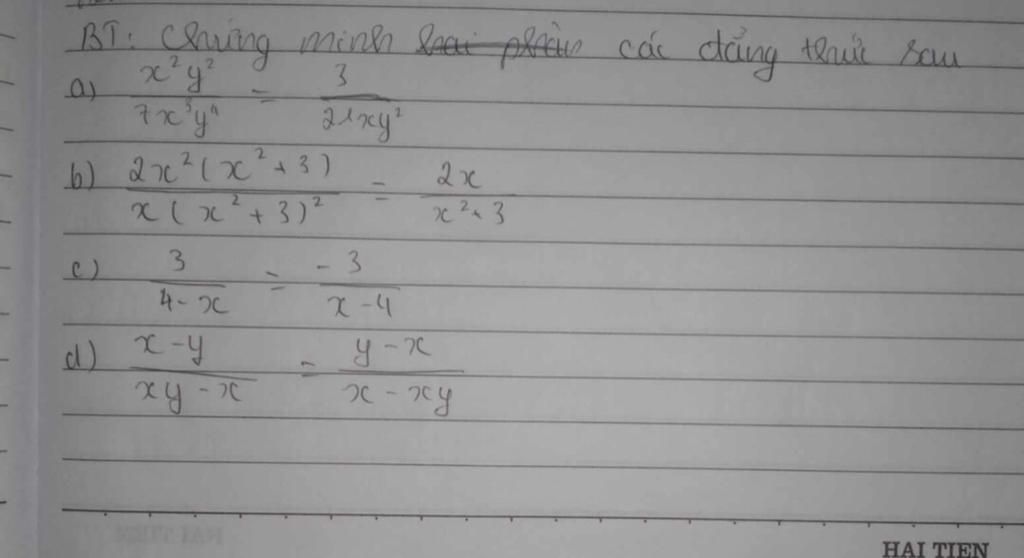 BT: Chứng minh hai phân các đẳng thức sau
a) x²y² / 7x³y⁴ = 3 / 21xy²
b) 2x²(x²+3) / x(x²+3)² = 2x / x²+3
c) 3 / 4-x = -3 / x-4
d) x-y / xy-x = y-x / x-xy
HAI TIEN